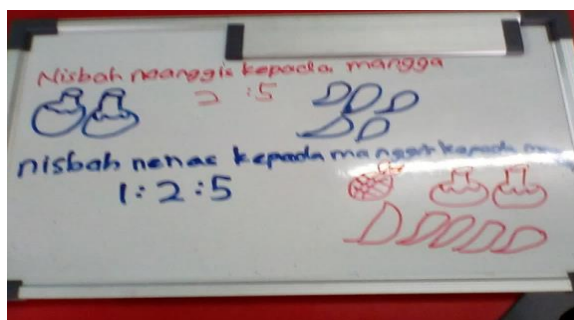 Nisbah manggis kepada mangga
2 :5
nisbah nenas kepada manggis kepada
1:2:5